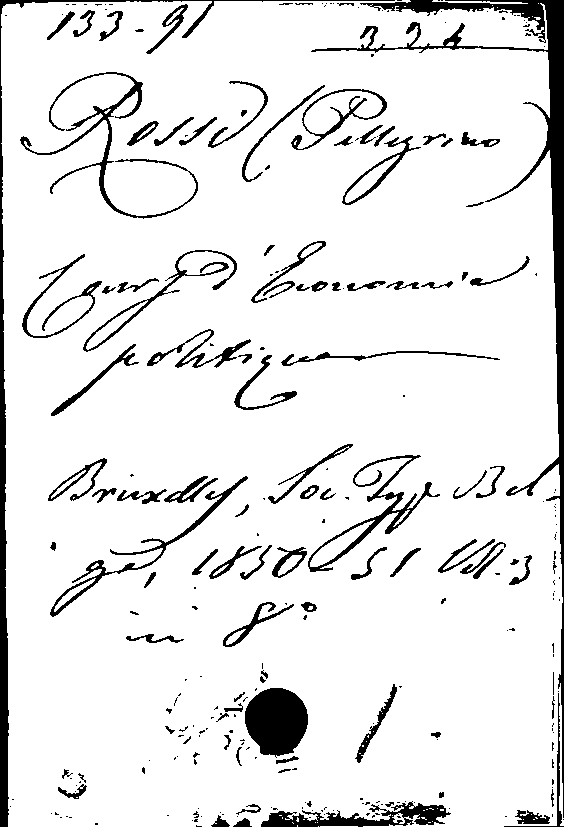 133-91
3, 3, 4
Rossi (Pellegrino)
Cours d'Economie
politique
Bruxelles, Soc. Typ. Bel-
ge, 1850-51 Vol. 3
in 8°
1